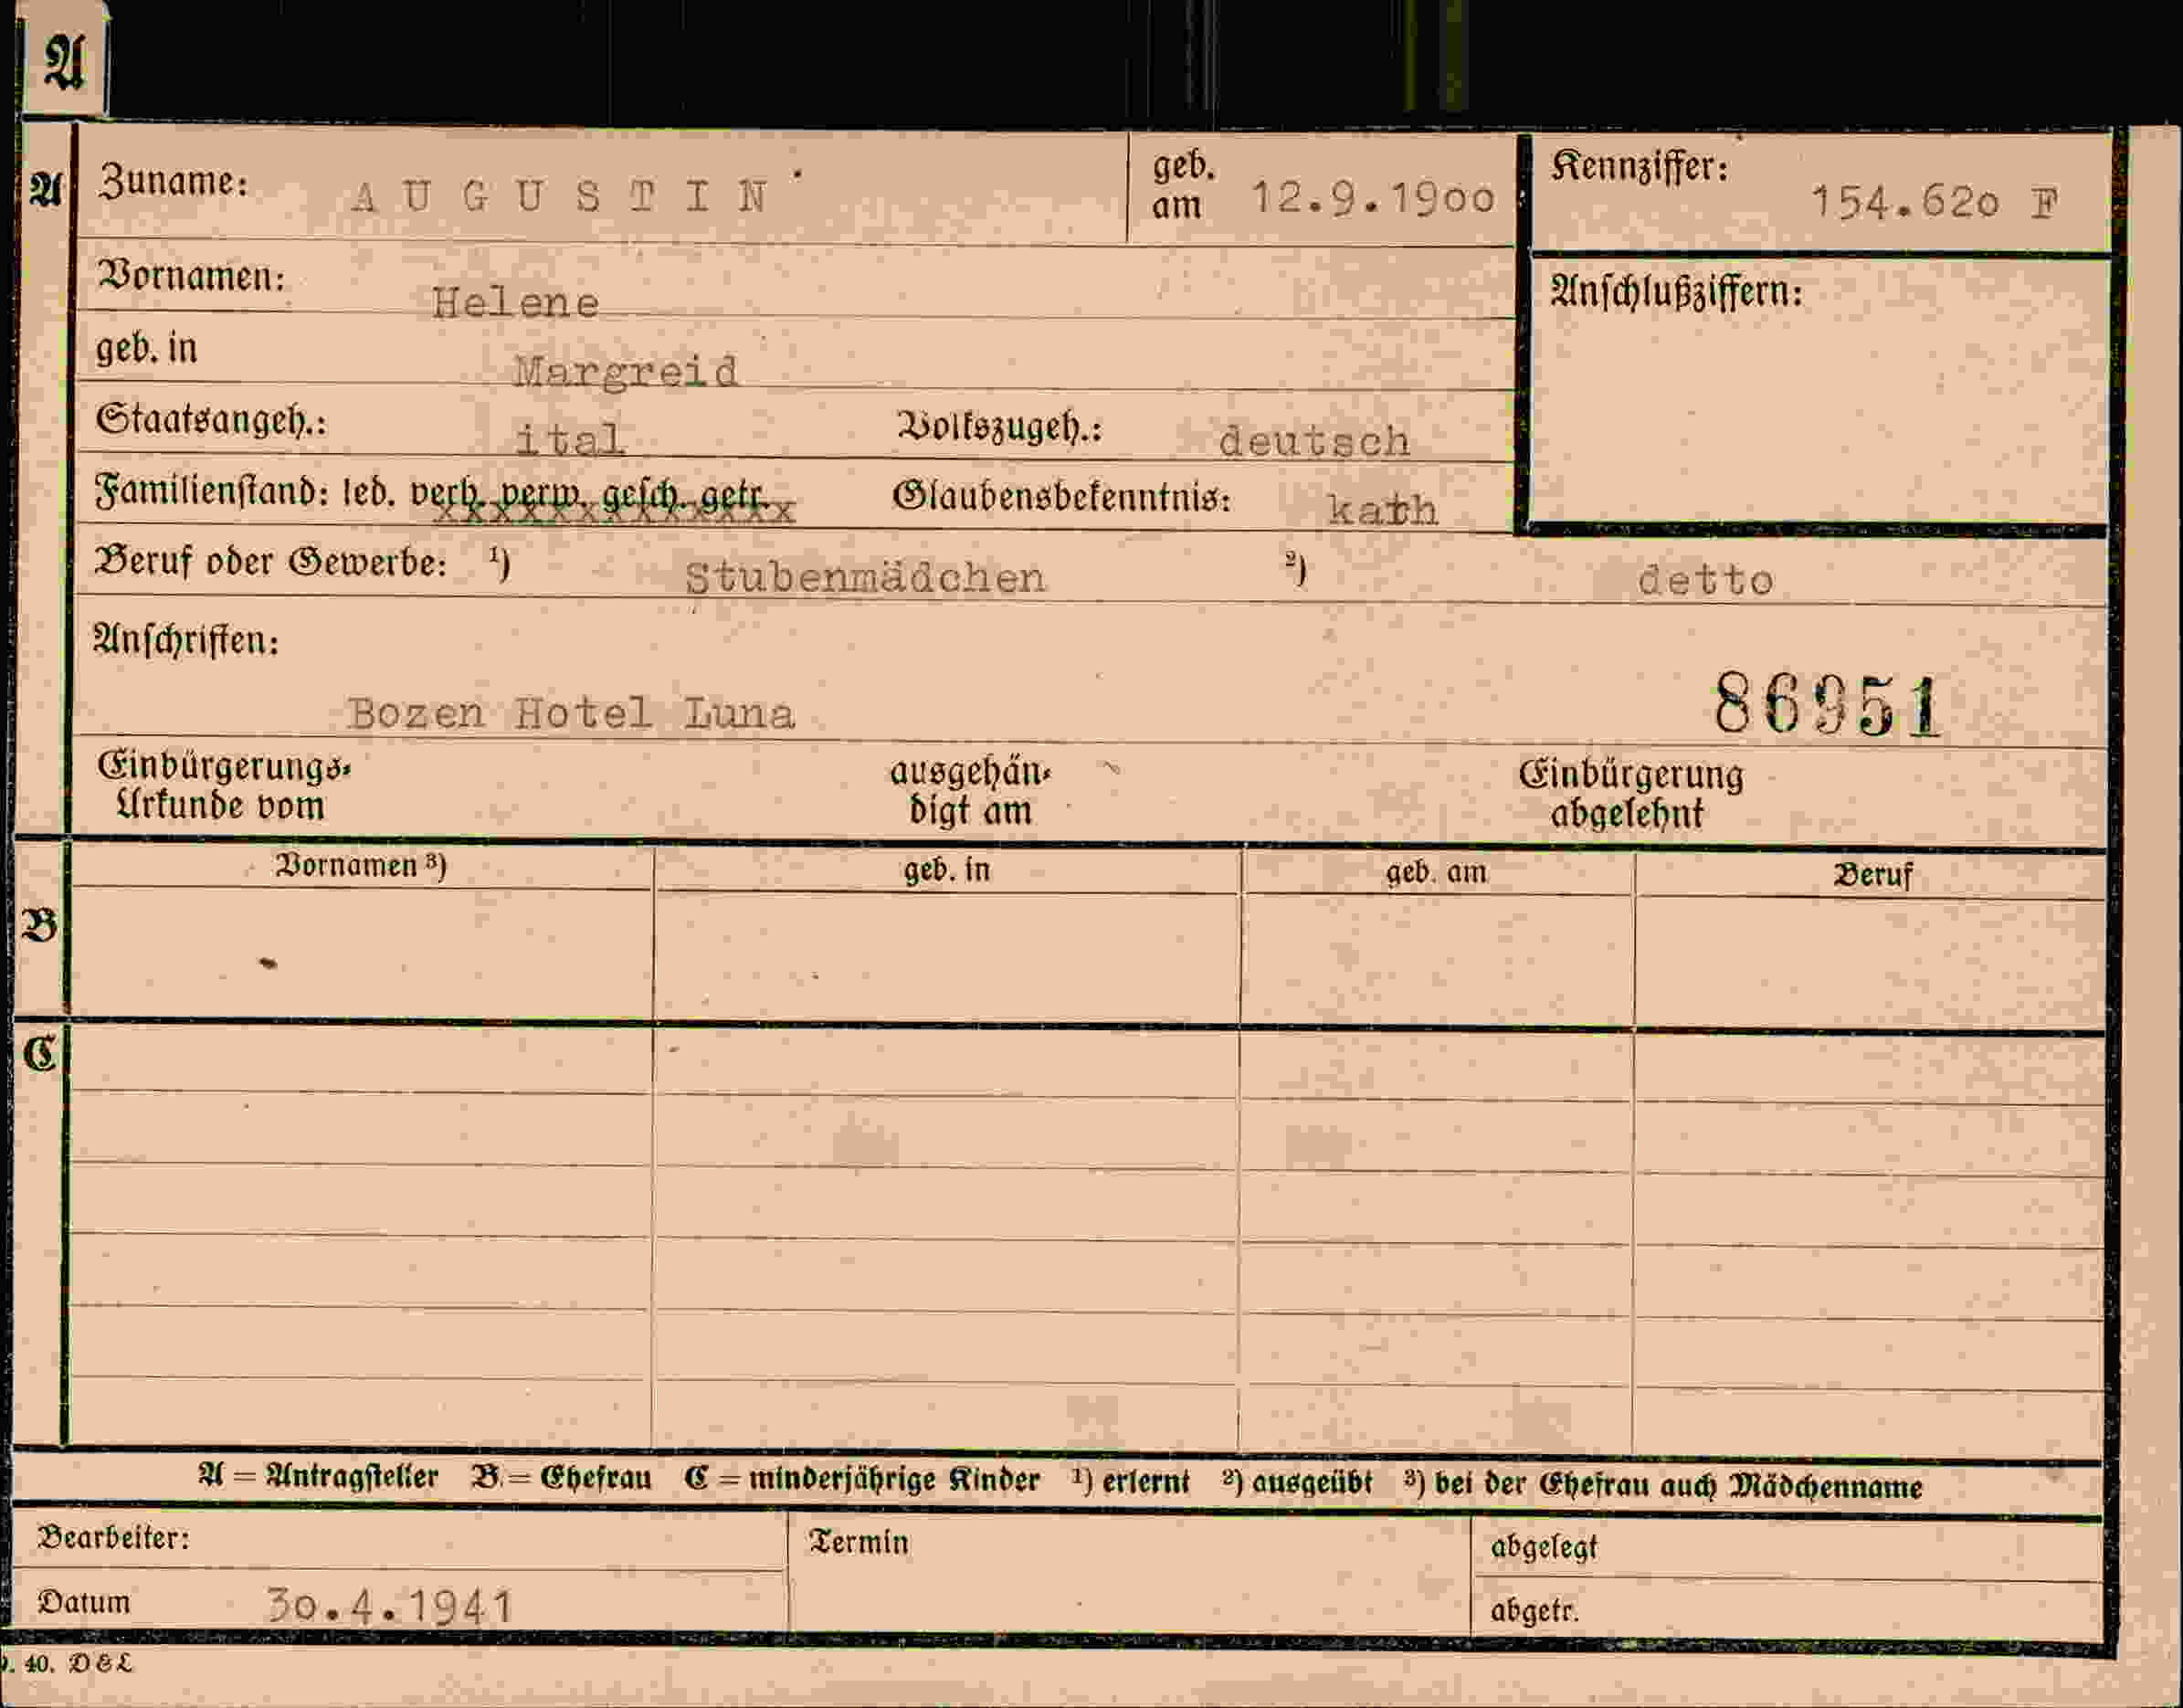 A
A Zuname: AUGUSTIN geb. am 12.9.1900 Kennziffer: 154.620 F
Vornamen: Helene Anschlußziffern:
geb. in Margreid
Staatsangeh.: ital Volkszugeh.: deutsch
Familienstand: led. verh. verw. gesch. getr. xxxxxxxxxxxxx Glaubensbekenntnis: kath
Beruf oder Gewerbe: ¹) Stubenmädchen ²) detto
Anschriften:
Bozen Hotel Luna 86951
Einbürgerungs- ausgehän- Einbürgerung
Urkunde vom digt am abgelehnt
Vornamen ³) geb. in geb. am Beruf
B
C
A = Antragsteller B = Ehefrau C = minderjährige Kinder ¹) erlernt ²) ausgeübt ³) bei der Ehefrau auch Mädchenname
Bearbeiter: Termin abgelegt
Datum 30.4.1941 abgetr.
40. D & L